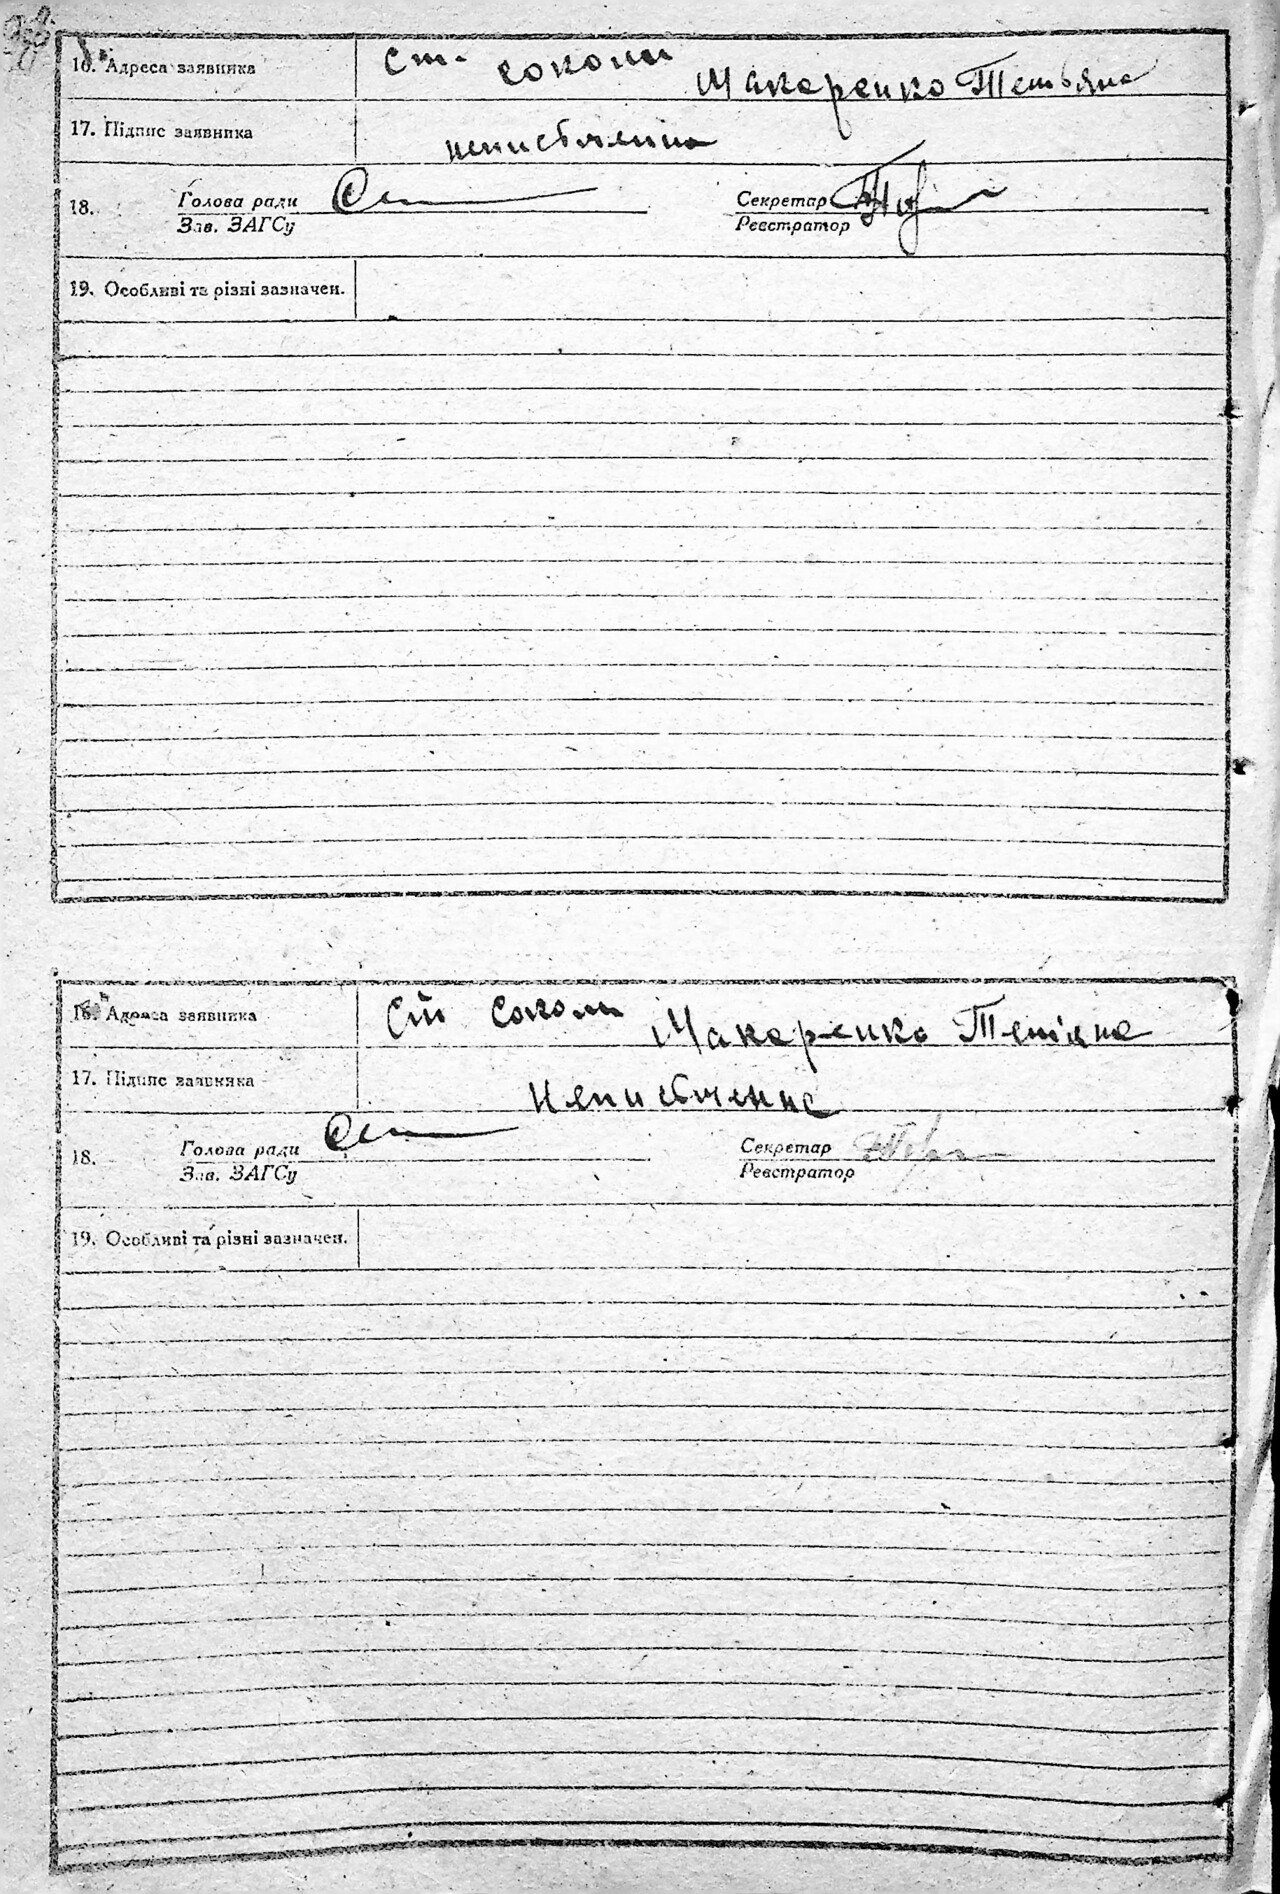 16. Адреса заявника ст. соколи Макаренко Тетьяна
17. Підпис заявника неписьменна
18. Голова ради Секретар
Зав. ЗАГСу Реєстратор
19. Особливі та різні зазначен.
16. Адреса заявника Ст Соколи Макаренко Тетіяна
17. Підпис заявника Неписьменна
18. Голова ради Секретар
Зав. ЗАГСу Реєстратор
19. Особливі та різні зазначен.